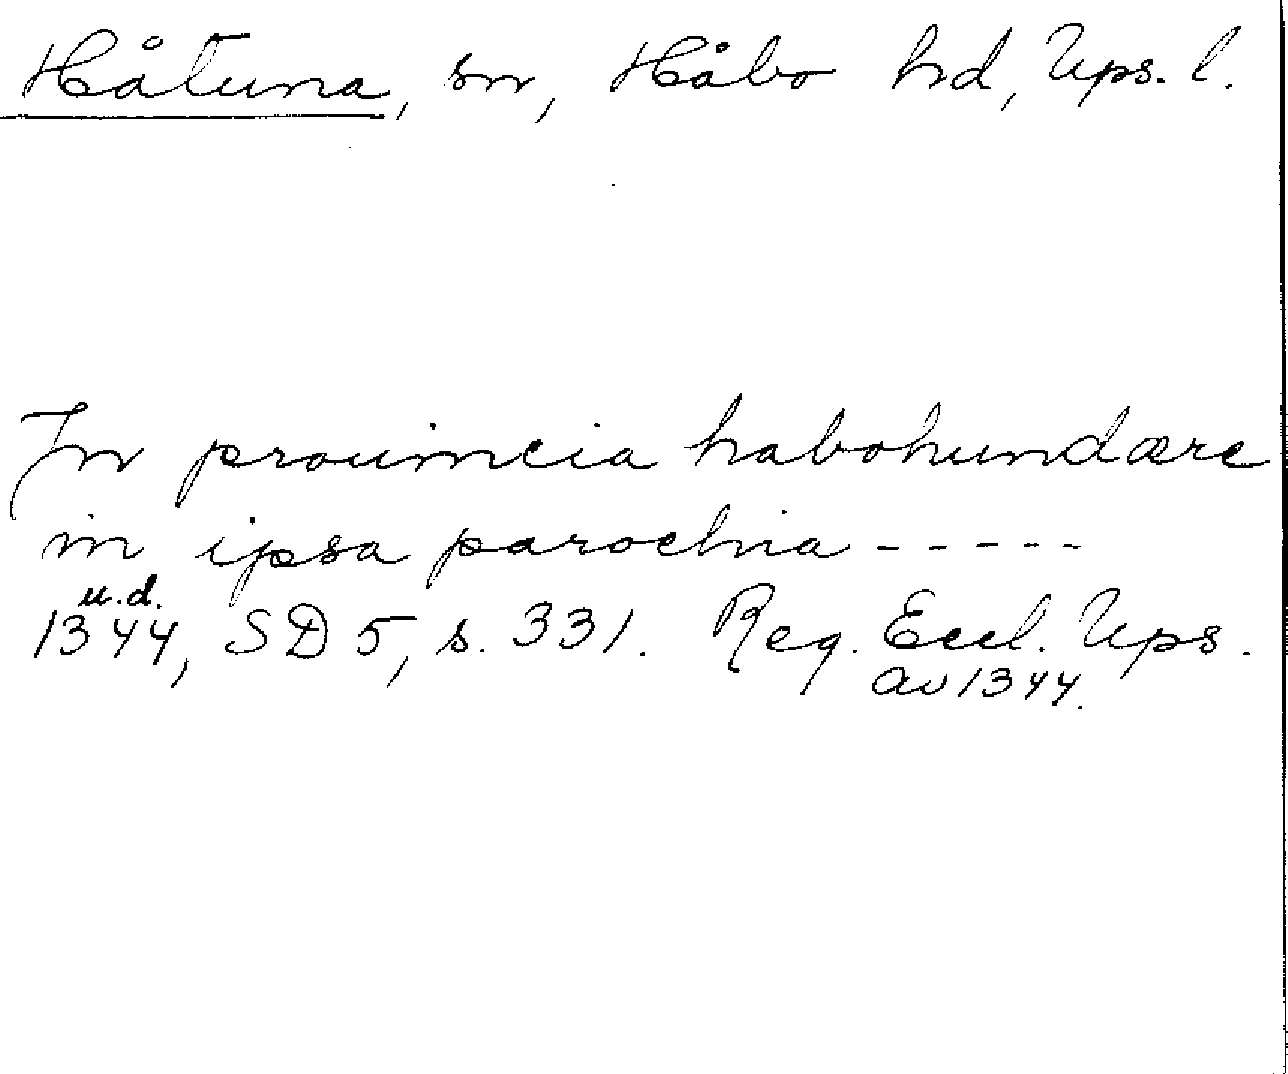 Håtuna, sn, Håbo hd, Ups. l.
In prouincia habohundære
in ipsa parochia - - - - -
u.d.
1344, SD 5, s. 331. Reg. Eccl. Ups.
av 1344.